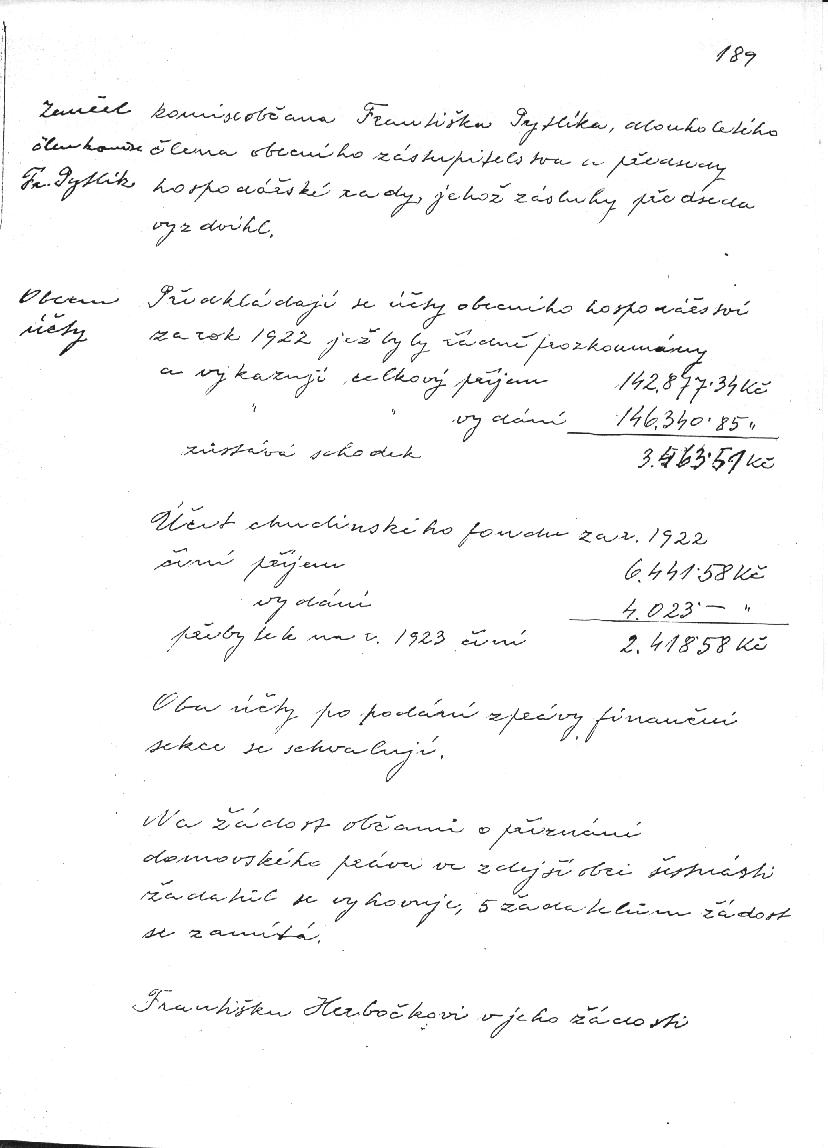 189
Zemřel komise občana Františka Pytlíka, dlouholetého
člen komise člena obecního zastupitelstva a předsedy
Fr. Pytlík hospodářské rady, jehož zásluhy předseda
vyzdvihl.
Obecní Předkládají se účty obecního hospodářství
účty za rok 1922 jež byly řádně prozkoumány
a vykazují celkový příjem 142.877·34 Kč
" " vydání 146.340·85 "
zůstává schodek 3.463·51 Kč
Účet chudinského fondu za r. 1922
činí příjem 6.441·58 Kč
vydání 4.023·— "
přebytek na r. 1923 činí 2.418·58 Kč
Oba účty po podání zprávy finanční
sekce se schvalují.
Na žádost občanů o přiznání
domovského práva ve zdejší obci šestnácti
žadatelů se vyhovuje, 5 žadatelům žádost
se zamítá.
Františku Herbočkovi v jeho žádosti